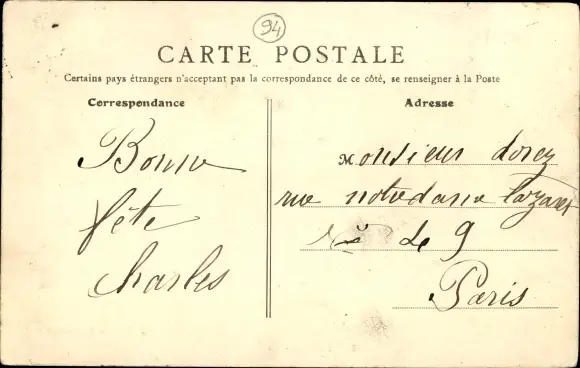 94
CARTE POSTALE
Certains pays étrangers n'acceptant pas la correspondance de ce côté, se renseigner à la Poste
Correspondance
Adresse
Bonne
fête
Charles
Monsieur dorez
rue notredame lazaret
Le 9
Paris